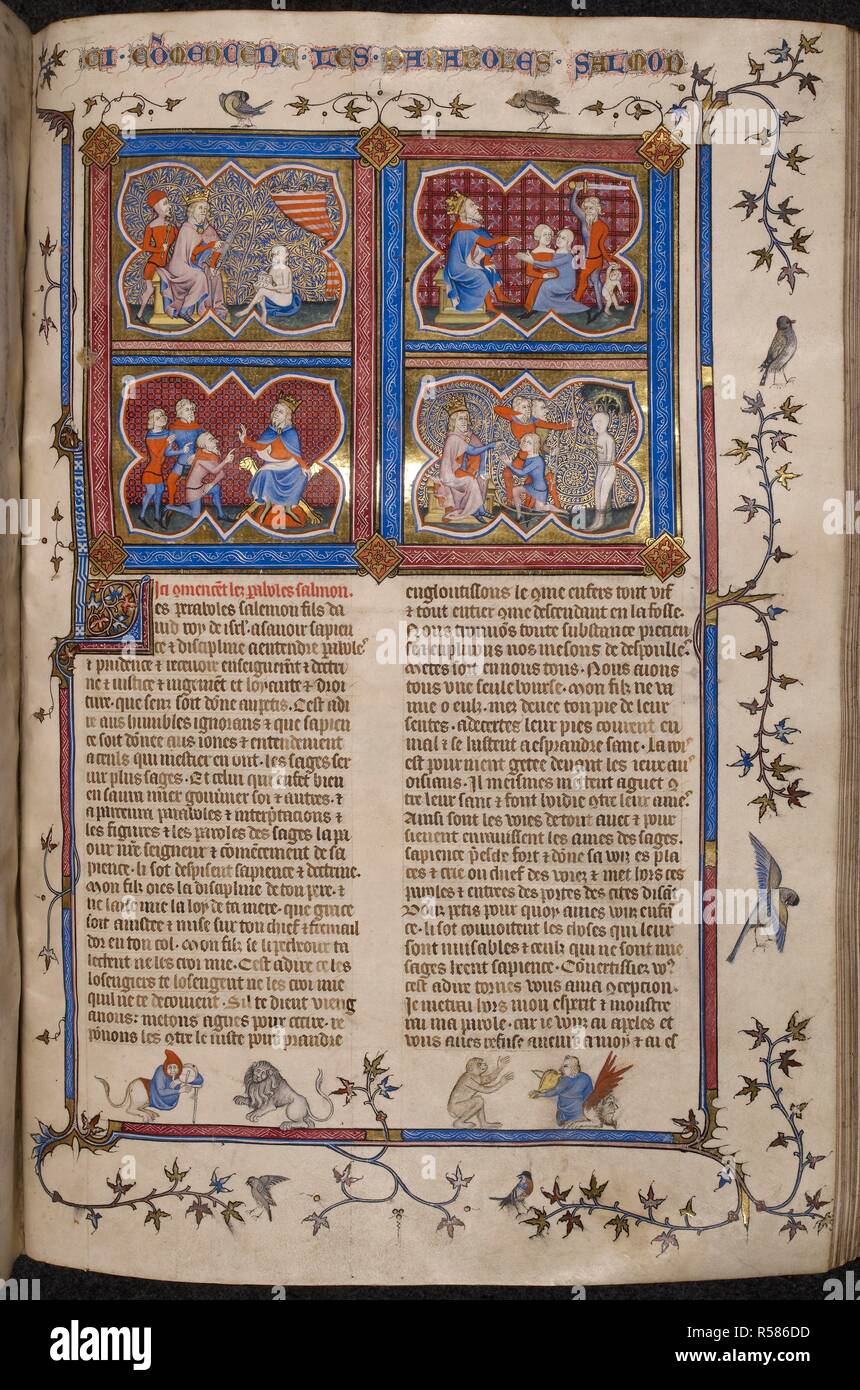 CI · COMENCENT · LES · PARABOLES · SALMON
Ici cmencēt les paboles salmon.
es paraboles salemon fils da
uid roy de isrl. asauoir sapien
ce & discipline aentendre parole
& prudence & receuoir enseignemēt & doctri
ne & iustice & iugement et loyaute & droi
ture. que sens soit dōne au petis. Cest adi
re aus humbles ignorans & que sapien
ce soit dōnee aus iones & entendement
a ceuls qui mestier en ont. les sages ser
uir plus sages. Et celui qui
en saura mier gouūner soi & autres. &
a parceura paraboles & interptacions &
les figures & les paroles des sages la pa
our nre seigneur & cōmencement de sa
pience. li sot despisent sapience & doctrine.
Mon filz oies la discipline de ton pere. &
ne laisse mie la loy de ta mere. que grace
soit aiustee & mise sur ton chief & fremail
dor en ton col. Mon filz se li pecheour ta
lectent ne les croi mie. Cest adire se les
losengiers te losengent ne les croi mie
quil ne te decoiuent. Sil te dient vieng
auous: metons agues pour occire. re
ponons les qtre le iuste pour prandre
engloutissons le qme enfers tout vif
& tout entier qme descendant en la fosse.
Nous trouuōs toute substance precieu
se emplirons nos mesons de despoille.
Metes sort en nous tous. Nous auons
tous vne seule bourse. Mon filz ne va
mie o eulz. mez deuee ton pie de leur
sentes. adecertes leur pies courent en
mal & se hastent a espandre sanc. La roi
est pour nient getee deuant les ieux au
oisiaus. Il meismes metent aguet q
tre leur sanc & font boidie qtre leur ame.
Ainsi sont les voies de tout auer & pour
sieuent enrauissent les ames des sages.
sapience pesche fort & dōne sa voiz es pla
ces & crie ou chief des voiez & met hors ces
paroles & entrees des portes des cites disāt
petis pour quoy ames vous enfan
ce. li sot couoitent les choses qui leur
sont nuisables & ceulz qui ne sont mie
sages heent sapience. Cōuertissiez vo9
cest adire tornes vous a ma qcepcion.
Je metrai hors mon esperit & moustre
rai ma parole. car ie vous ai apeles et
vous aues refuse auenir a moy & ai es
alamy
Image ID: R586DD
www.alamy.com